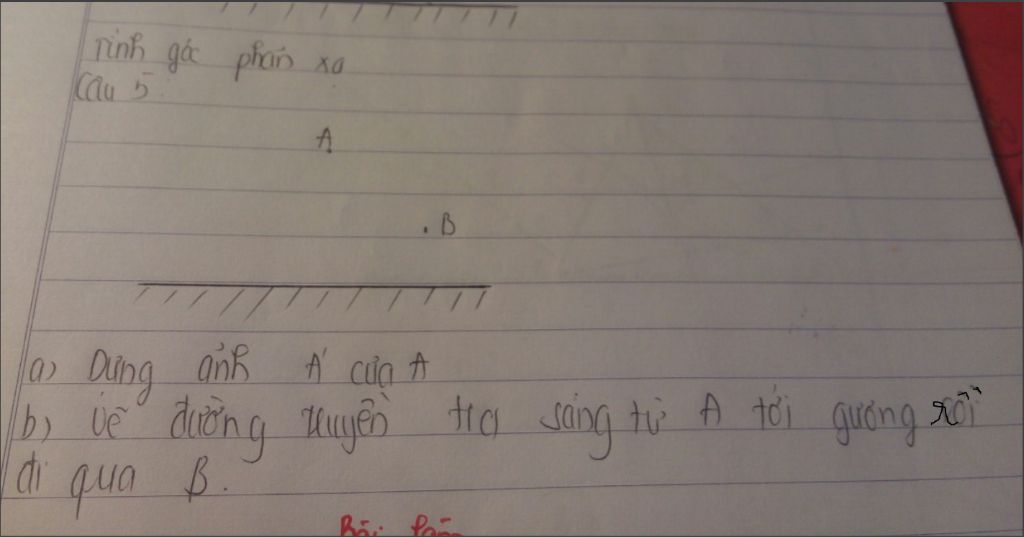 Tính góc phản xạ
Câu 5:
A
. B
a) Dựng ảnh A' của A
b) Vẽ đường truyền tia sáng từ A tới gương rồi
đi qua B.
Bài làm